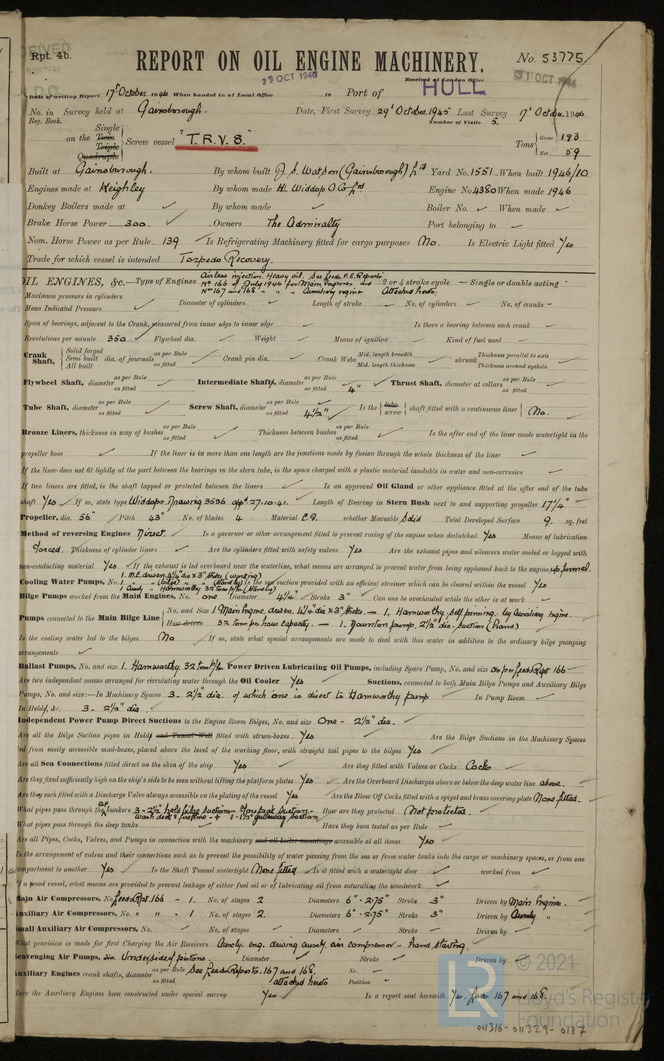 Rpt. 4b.
REPORT ON OIL ENGINE MACHINERY.
No. 53775
Received at London Office
29 OCT 1946
31 OCT 1946
Date of writing Report 17th October 1946 When handed in at Local Office 19 Port of HULL
No. in Survey held at Gainsborough. Date, First Survey 29th October, 1945 Last Survey 17th October 1946
Reg. Book. Number of Visits 5.
on the Single Twin Triple Quadruple Screw vessel "T.R.V. 8." Tons Gross 193 Net 59
Built at Gainsborough. By whom built J. S. Watson (Gainsborough) Ltd. Yard No. 1551 When built 1946/10
Engines made at Keighley By whom made H. Widdop & Co Ltd Engine No. 4380 When made 1946
Donkey Boilers made at By whom made Boiler No. When made
Brake Horse Power 300. Owners The Admiralty Port belonging to
Nom. Horse Power as per Rule 139 Is Refrigerating Machinery fitted for cargo purposes No. Is Electric Light fitted Yes
Trade for which vessel is intended Torpedo Recovery.
OIL ENGINES, &c. Type of Engines Airless injection. Heavy oil. See Leeds F.E. Reports No 166 of July 1946 for Main engines and No 167 and 168 " " Auxiliary engines attached hereto. 2 or 4 stroke cycle Single or double acting
Maximum pressure in cylinders Diameter of cylinders Length of stroke No. of cylinders No. of cranks
Mean Indicated Pressure
Span of bearings, adjacent to the Crank, measured from inner edge to inner edge Is there a bearing between each crank
Revolutions per minute 350 Flywheel dia. Weight Means of ignition Kind of fuel used
Crank Shaft, Solid forged Semi built All built dia. of journals as per Rule as fitted Crank pin dia. Crank Webs Mid. length breadth Mid. length thickness shrunk Thickness parallel to axis Thickness around eyehole
Flywheel Shaft, diameter as per Rule as fitted Intermediate Shafts, diameter as per Rule as fitted 4" Thrust Shaft, diameter at collars as per Rule as fitted
Tube Shaft, diameter as per Rule as fitted Screw Shaft, diameter as per Rule as fitted 4½" Is the tube screw shaft fitted with a continuous liner No.
Bronze Liners, thickness in way of bushes as per Rule as fitted Thickness between bushes as per Rule as fitted Is the after end of the liner made watertight in the
propeller boss If the liner is in more than one length are the junctions made by fusion through the whole thickness of the liner
If the liner does not fit tightly at the part between the bearings in the stern tube, is the space charged with a plastic material insoluble in water and non-corrosive
If two liners are fitted, is the shaft lapped or protected between the liners Is an approved Oil Gland or other appliance fitted at the after end of the tube
shaft Yes If so, state type Widdops Drawing 3536 appd 27.10.41. Length of Bearing in Stern Bush next to and supporting propeller 17¼"
Propeller, dia. 56" Pitch 43" No. of blades 4 Material C.I. whether Moveable Solid Total Developed Surface 9. sq. feet
Method of reversing Engines Direct. Is a governor or other arrangement fitted to prevent racing of the engine when declutched Yes Means of lubrication
Forced. Thickness of cylinder liners Are the cylinders fitted with safety valves Yes Are the exhaust pipes and silencers water cooled or lagged with
non-conducting material Yes If the exhaust is led overboard near the waterline, what means are arranged to prevent water from being syphoned back to the engine up funnel.
Cooling Water Pumps, No. Is the sea suction provided with an efficient strainer which can be cleared within the vessel Yes
Bilge Pumps worked from the Main Engines, No. one Diameter 4¼" Stroke 3" Can one be overhauled while the other is at work
Pumps connected to the Main Bilge Line No. and Size How driven 1 Main Engine driven. 4¼" dia x 3" Stroke — 1. Hamworthy, self priming by Auxiliary Engine. 32 tons per hour capacity. — 1 Downton pump, 2½" dia. suction (Hand)
Is the cooling water led to the bilges No If so, state what special arrangements are made to deal with this water in addition to the ordinary bilge pumping
arrangements
Ballast Pumps, No. and size 1. Hamworthy. 32 tons p/hr Power Driven Lubricating Oil Pumps, including Spare Pump, No. and size as per Leeds Rpt 166
Are two independent means arranged for circulating water through the Oil Cooler Yes Suctions, connected to both Main Bilge Pumps and Auxiliary Bilge
Pumps, No. and size:—In Machinery Spaces 3 - 2½" dia. of which one is direct to Hamworthy pump In Pump Room
In Holds, &c. 3 - 2½" dia
Independent Power Pump Direct Suctions to the Engine Room Bilges, No. and size One - 2½" dia.
Are all the Bilge Suction pipes in Holds and Tunnel Well fitted with strum-boxes Yes Are the Bilge Suctions in the Machinery Spaces
led from easily accessible mud-boxes, placed above the level of the working floor, with straight tail pipes to the bilges Yes
Are all Sea Connections fitted direct on the skin of the ship Yes Are they fitted with Valves or Cocks Cocks
Are they fixed sufficiently high on the ship's side to be seen without lifting the platform plates Yes Are the Overboard Discharges above or below the deep water line above.
Are they each fitted with a Discharge Valve always accessible on the plating of the vessel Yes Are the Blow Off Cocks fitted with a spigot and brass covering plate None fitted.
What pipes pass through the bunkers 3 - 2½" hold bilge suction How are they protected Not protected.
What pipes pass through the deep tanks Have they been tested as per Rule
Are all Pipes, Cocks, Valves, and Pumps in connection with the machinery and all boiler mountings accessible at all times Yes
Is the arrangement of valves and their connections such as to prevent the possibility of water passing from the sea or from water tanks into the cargo or machinery spaces, or from one
compartment to another Yes Is the Shaft Tunnel watertight None fitted Is it fitted with a watertight door worked from
If a wood vessel, what means are provided to prevent leakage of either fuel oil or of lubricating oil from saturating the woodwork
Main Air Compressors, No. Leeds Rpt. 166 - 1. No. of stages 2 Diameters 6" - 2.75" Stroke 3" Driven by Main Engine.
Auxiliary Air Compressors, No. " " - 1 No. of stages 2. Diameters 6" - 2.75" Stroke 3" Driven by Auxly "
Small Auxiliary Air Compressors, No. No. of stages Diameters Stroke Driven by
What provision is made for first Charging the Air Receivers Auxly. eng. driving auxly. air compressor - hand starting.
Scavenging Air Pumps, No. Underside of pistons. Diameter Stroke Driven by
Auxiliary Engines crank shafts, diameter as per Rule as fitted See Leeds Reports. 167 and 168. attached hereto No. Position
Have the Auxiliary Engines been constructed under special survey Yes Is a report sent herewith Yes. Leeds 167 and 168.
© 2021
Lloyd's Register
Foundation
LR
011316-011329-0187